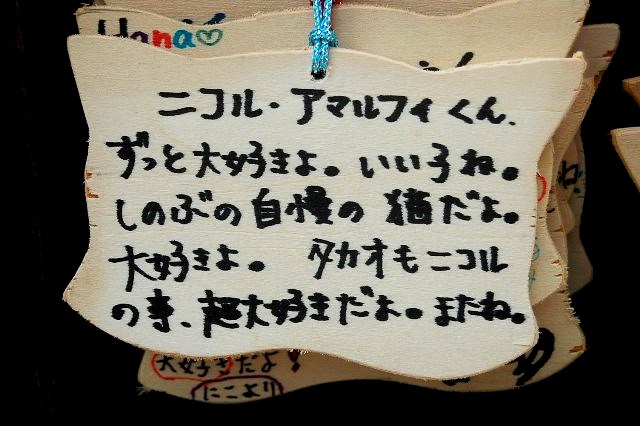 Hana♡
ニコル・アマルフィくん、
ずっと大好きよ。いい子ね。
しのぶの自慢の猫だよ。
大好きよ。タカオもニコル
の事、超大好きだよ。またね。
ね。
大好きだよ!
にこより